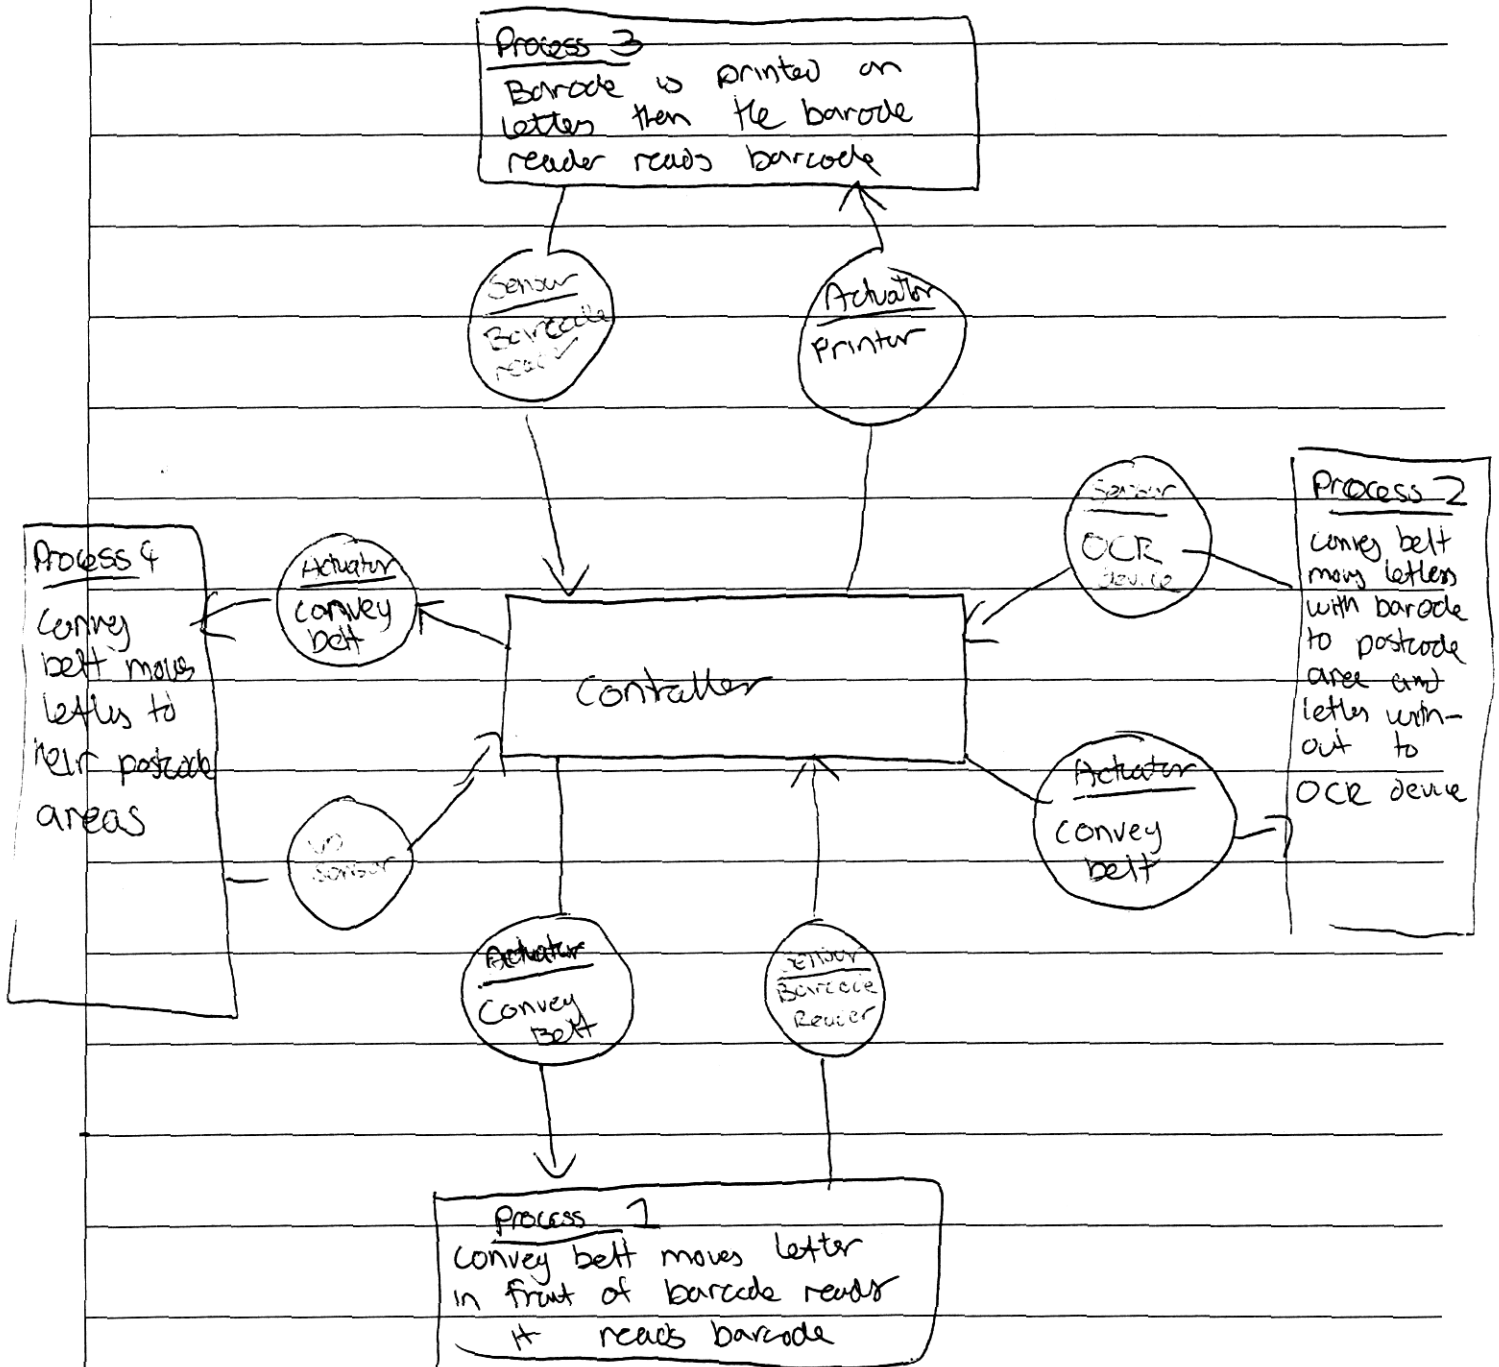 Process 3
Barcode is printed on
letters then the barcode
reader reads barcode
Sensor
Barcode
Actuator
Printer
Sensor
OCR
device
Process 2
convey belt
movs letters
with barode
to postcode
area and
letters with-
out to
OCR device
Process 4
Convey
belt moves
letters to
their postcode
areas
Actuator
convey
belt
Controller
Actuator
convey
belt
no
sensor
Actuator
Convey
Belt
Sensor
Barcode
Reader
Process 1
convey belt moves letter
in front of barcode reader
it reads barcode